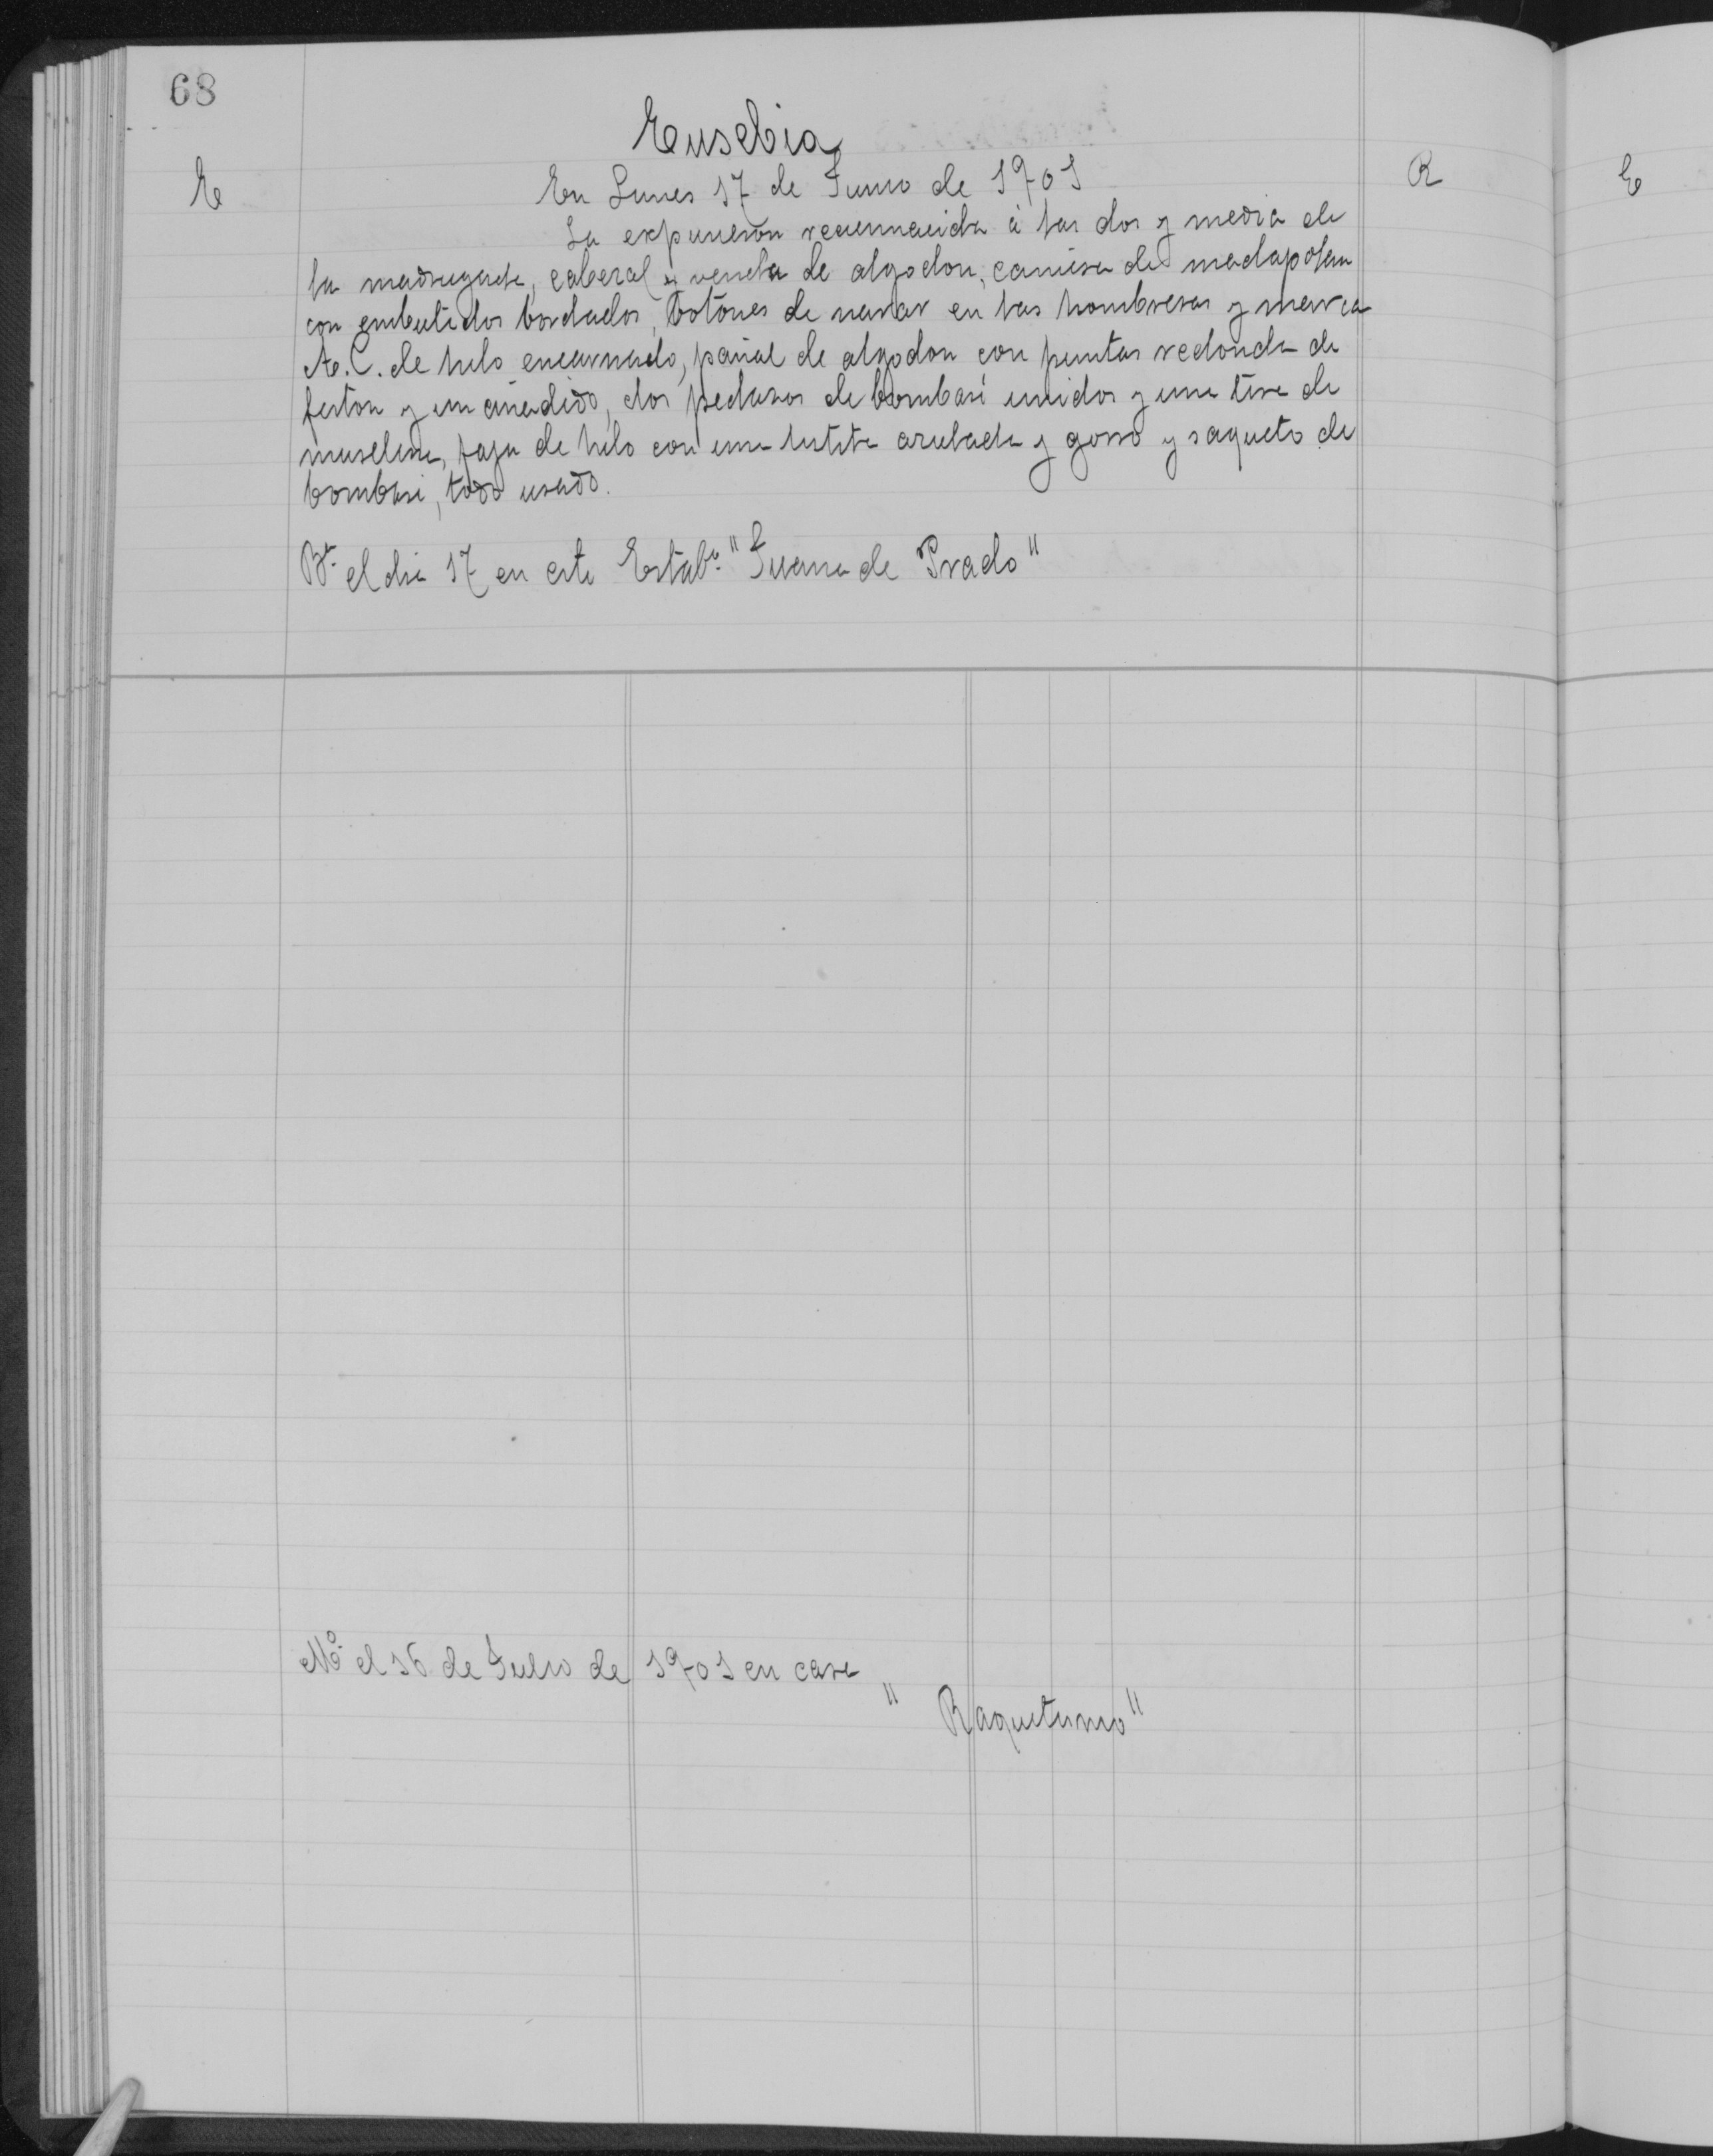 68
Eusebia
E
En Lunes 17 de Junio de 1901
R
E
La expusieron reciennacida á las dos y media de
la madrugada, cabezal y venda de algodon, camisa de madapolan
con embutidos bordados, botones de nacar en las hombreras y marca
A.C. de hilo encarnado, pañal de algodon con puntas redonda de
feston y un añadido, dos pedazos de bombasí unidos y una tira de
muselina, faja de hilo con una listita azulada y gorro y saquito de
bombasi, todo usado.
Bª el dia 17 en este Estabº "Juana de Prado"
Mº el 16 de Julio de 1901 en casa
" Raquitismo"